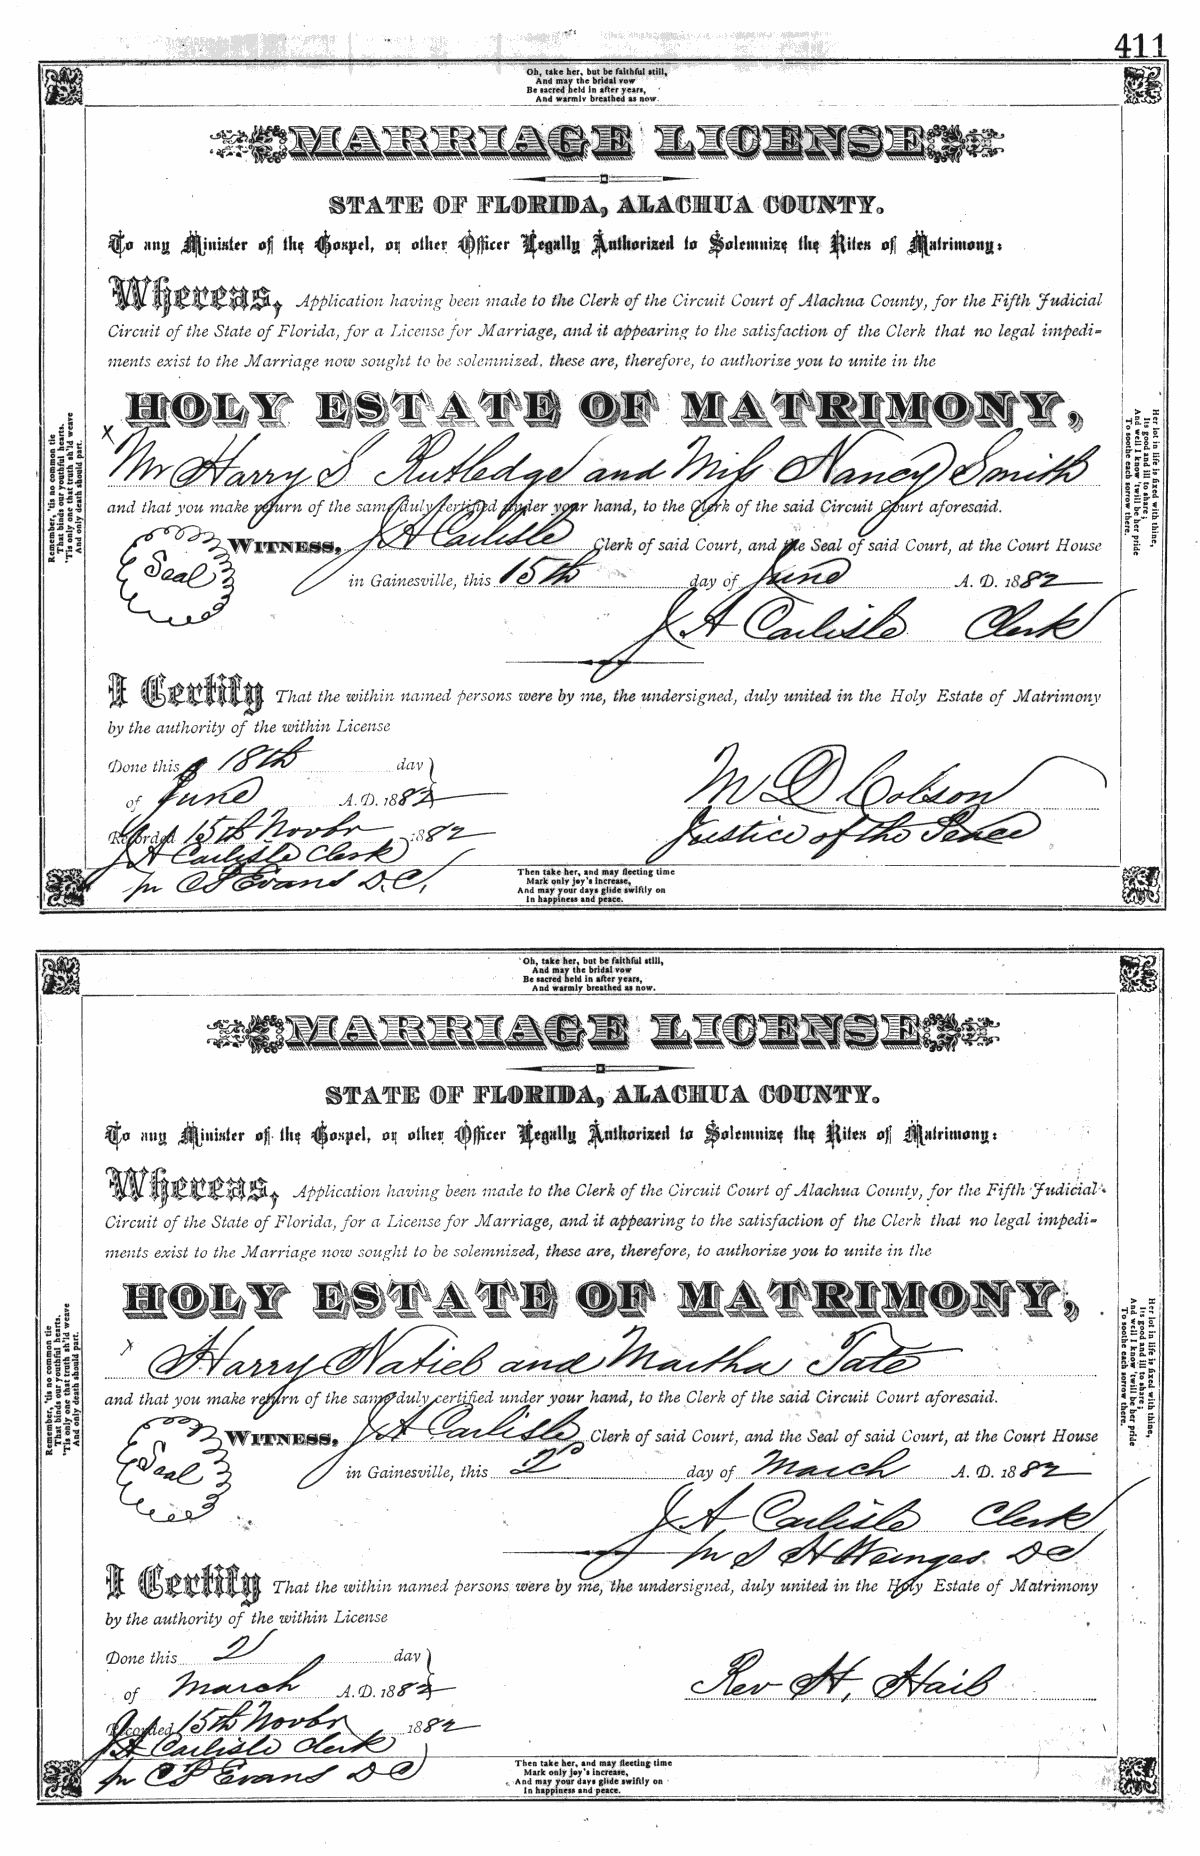 411
Oh, take her, but be faithful still,
And may the bridal vow
Be sacred held in after years,
And warmly breathed as now.
MARRIAGE LICENSE
STATE OF FLORIDA, ALACHUA COUNTY.
To any Minister of the Gospel, or other Officer Legally Authorized to Solemnize the Rites of Matrimony:
Whereas, Application having been made to the Clerk of the Circuit Court of Alachua County, for the Fifth Judicial
Circuit of the State of Florida, for a License for Marriage, and it appearing to the satisfaction of the Clerk that no legal impedi=
ments exist to the Marriage now sought to be solemnized, these are, therefore, to authorize you to unite in the
HOLY ESTATE OF MATRIMONY,
x
Mr Harry S Rutledge and Miss Nancy Smith
and that you make return of the same duly certified under your hand, to the Clerk of the said Circuit Court aforesaid.
Seal
WITNESS, J A Carlisle Clerk of said Court, and the Seal of said Court, at the Court House
in Gainesville, this 15th day of June A. D. 1882
J A Carlisle Clerk
I Certify That the within named persons were by me, the undersigned, duly united in the Holy Estate of Matrimony
by the authority of the within License
Done this 18th day
of June A. D. 1882
M D Colson
Justice of the Peace
Recorded 15th Novbr 1882
J A Carlisle Clerk
pr C P Evans D.C.
Remember, 'tis no common tie
That binds our youthful hearts.
'Tis only one that truth sh'ld weave
And only death should part.
Her lot in life is fixed with thine,
Its good and ill to share;
And well I know 'twill be her pride
To soothe each sorrow there.
Then take her, and may fleeting time
Mark only joy's increase,
And may your days glide swiftly on
In happiness and peace.
Oh, take her, but be faithful still,
And may the bridal vow
Be sacred held in after years,
And warmly breathed as now.
MARRIAGE LICENSE
STATE OF FLORIDA, ALACHUA COUNTY.
To any Minister of the Gospel, or other Officer Legally Authorized to Solemnize the Rites of Matrimony:
Whereas, Application having been made to the Clerk of the Circuit Court of Alachua County, for the Fifth Judicial
Circuit of the State of Florida, for a License for Marriage, and it appearing to the satisfaction of the Clerk that no legal impedi=
ments exist to the Marriage now sought to be solemnized, these are, therefore, to authorize you to unite in the
HOLY ESTATE OF MATRIMONY,
x
Harry Natiel and Martha Tate
and that you make return of the same duly certified under your hand, to the Clerk of the said Circuit Court aforesaid.
Seal
WITNESS, J A Carlisle Clerk of said Court, and the Seal of said Court, at the Court House
in Gainesville, this 2d day of March A. D. 1882
J A Carlisle Clerk
pr S H DC
I Certify That the within named persons were by me, the undersigned, duly united in the Holy Estate of Matrimony
by the authority of the within License
Done this 2 day
of March A. D. 1882
Rev H. Hail
Recorded 15th Novbr 1882
J A Carlisle clerk
pr C P Evans DC
Remember, 'tis no common tie
That binds our youthful hearts.
'Tis only one that truth sh'ld weave
And only death should part.
Her lot in life is fixed with thine,
Its good and ill to share;
And well I know 'twill be her pride
To soothe each sorrow there.
Then take her, and may fleeting time
Mark only joy's increase,
And may your days glide swiftly on
In happiness and peace.